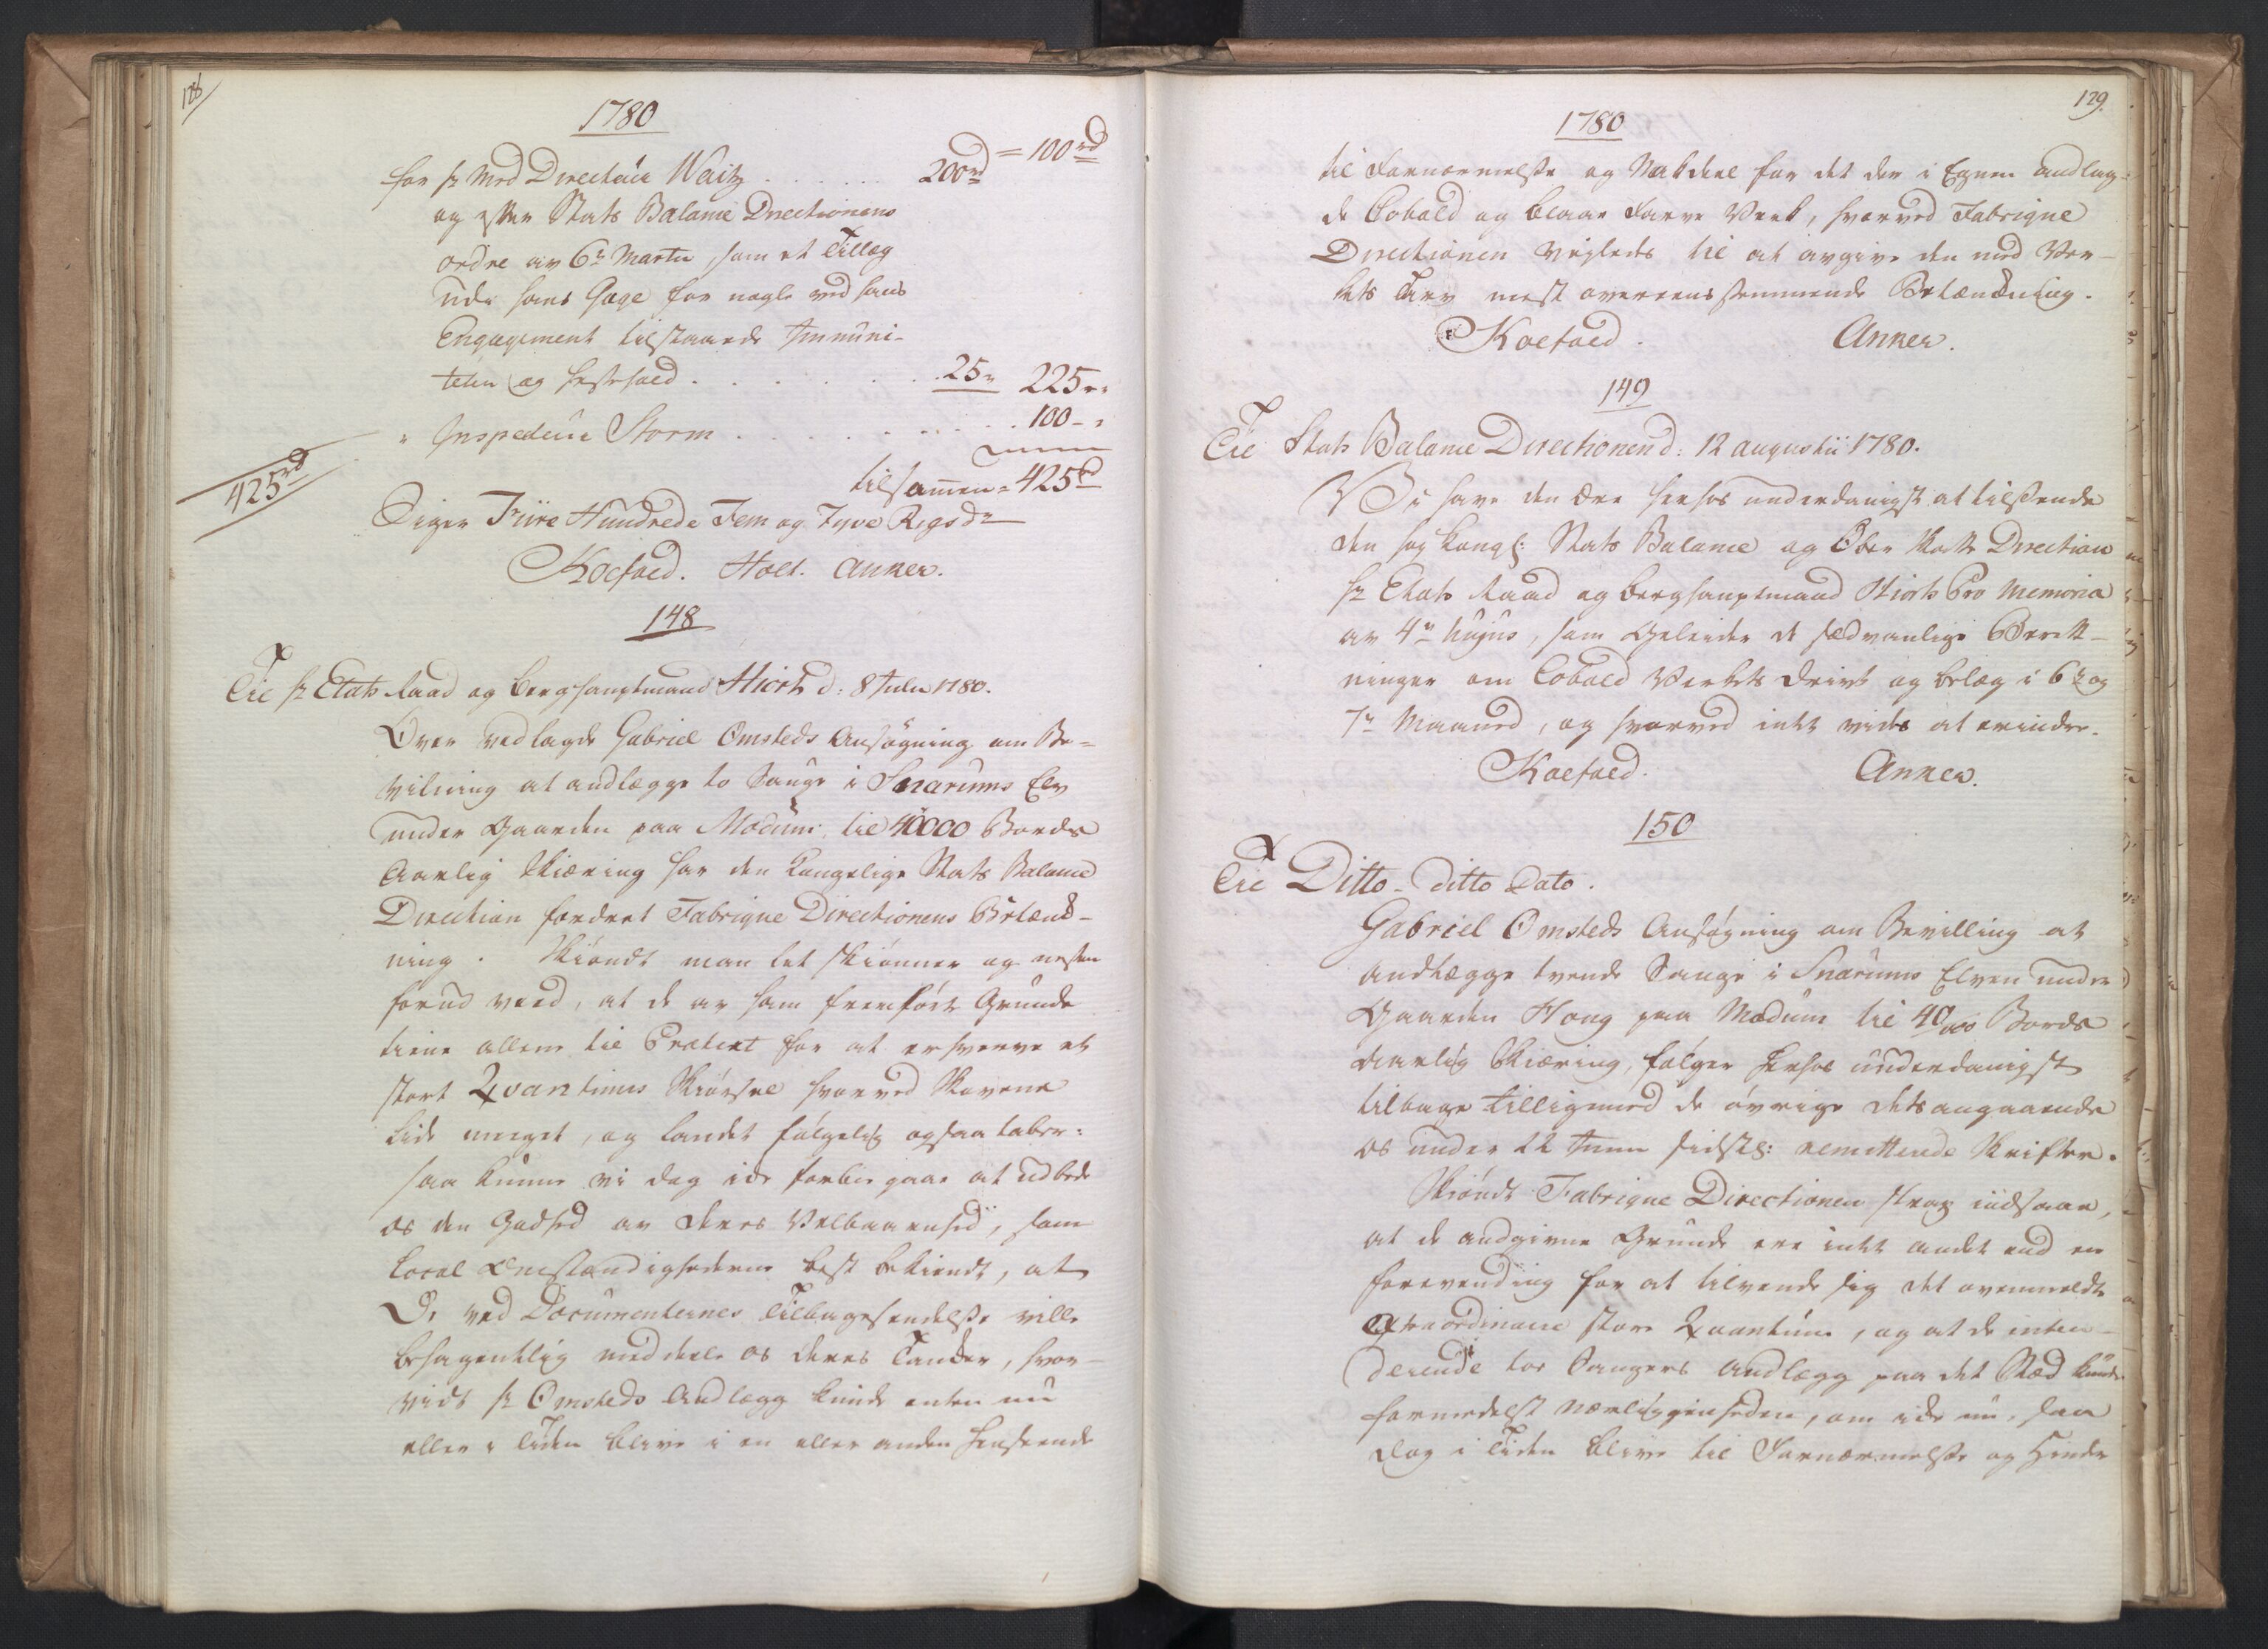 128
1780
for hr Med Directeur Waitz . . . . . . 200rd = 100rd
og efter Stats Balance Directionens
ordre av 6te Martii, som et Tillæg
udi hans Gage for nogle ved hans
Engagement tilstaaede Immuni-
teter og hestehold . . . . . . . 25 „ 225 „ „
„ Inspecteur Storm . . . . . . . . . 100 - „
425rd
tilsamen = 425rd
Siger Fiire Hundrede Fem og Tyve Rigsdr
Koefoed. Holt. Anker.
148
Til hr Etats Raad og Berghauptmand Hiorth d: 8 Julii 1780.
Over vedlagde Gabriel Omsteds Ansøgning om Be-
vilning at andlægge to Sauge i Snarums Elv
under Gaarden paa Modum til 40000 Bords
Aarlig Skiæring har den Kongelige Stats Balance
Direction fordret Fabrique Directionens Betænk-
ning. Skiøndt man let skiønner og nesten
forud veed, at de av ham fremførte Grunde
tiene allene til Prætext for at erhverve et
stort Qvantums Skiørsel hvorved Skovene
lide meeget, og landet følgelig ogsaa taber:
saa kunne vi dog ike forbiegaae at udbede
os den Godhed av Deres Velbaarenhed, som
Local Omstændighederne best bekiendt, at
De ved Documenternes Tilbagesendelse ville
behagentlig meddeele os Deres Tanker, hvor-
vidt hr Omsteds Andlægg kunde enten nu
eller i Tiden blive i en eller anden Henseende
129.
1780
til Fornærmelse og Nakdeel for det der i Egnen andlag-
de Cobold og blaae Farve Verk, hvorved Fabrique
Directionen veyledes til at avgive den med Ver-
kets Tarv mest overeensstemmende Betænkning.
Koefoed. Anker.
149
Til Stats Balance Directionen d: 12 augustii 1780.
Vi have den Ære herhos underdanigst at tilsende
den høy Kongl: Stats Balance og Over Skatte Direction
hr Etats Raad og Berghauptmand Hiorts Pro Memoria
av 4de hujus, som Geleider de sædvanlige Beret-
ninger om Cobold Verkets Drivt og belæg i 6te og
7de Maaned, og hvorved intet vides at erindre.
Koefoed. Anker.
150
Til Ditto - ditto Dato.
Gabriel Omsteds Ansøgning om Bevilling at
andlægge tvende Sauge i Snarums Elven under
Gaarden Houg paa Modum til 40/000 Bords
aarlig Skiæring, følger herhos underdanigst
tilbage tilligemed de øvrige dets angaaende
os under 22 Junii sidstl: remitterede Skrifter.
Skiøndt Fabrique Directionen strax indsaae,
at de andgivne Grunde ere intet andet end en
forevending for at tilvende sig det ovenmeldte
extraordinaire store Qvantum, og at de inten-
derende toe Saugers Andlægg paa det Stæd kunde
formedelst nærliggenheden, om ike nu, saa
dog i Tiden blive til Fornærmelse og Hinder